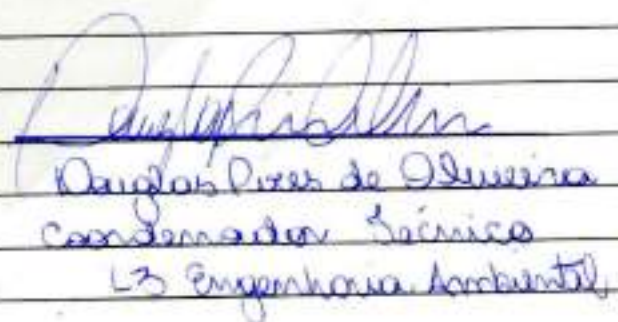 Douglas Pires de Oliveira
Coordenador Técnico
L3 Engenharia Ambiental